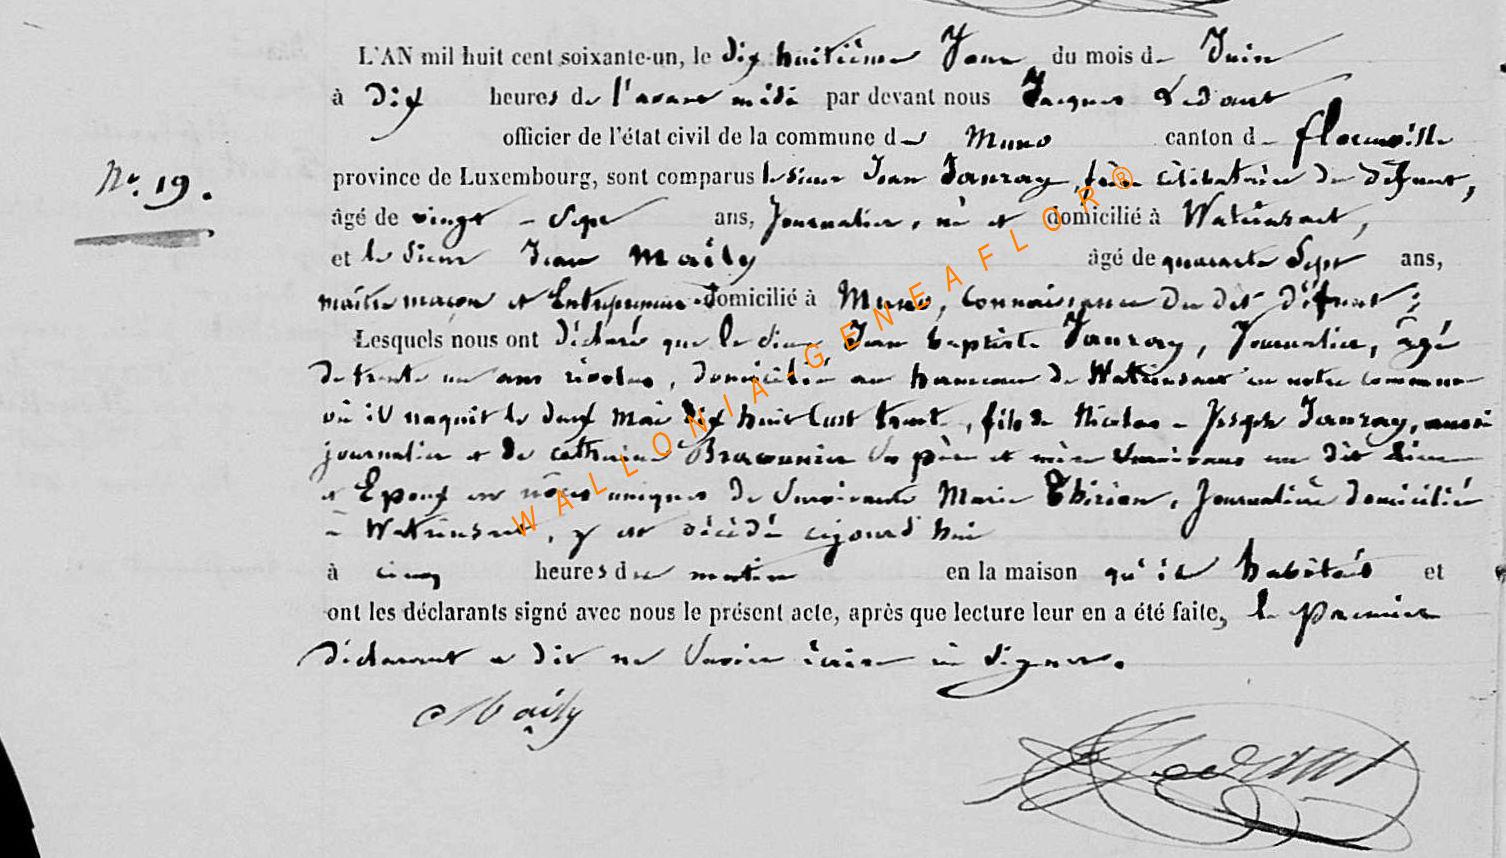 L'AN mil huit cent soixante-un, le dix huitième Jour du mois de Juin
à Dix heures de l'avant midi par devant nous Jacques Ledant
officier de l'état civil de la commune de Muno canton de florenville
N° 19.
province de Luxembourg, sont comparus le sieur Jean Janray, frère célibataire du défunt,
âgé de vingt - Sept ans, Journalier, né et domicilié à Watrinsart,
et le Sieur Jean Maily âgé de quarante Sept ans,
maître maçon et Entrepreneur domicilié à Muno, Connaissance du dit défunt ;
Lesquels nous ont déclaré que le sieur Jean baptiste Janray, Journalier, âgé
de trente un ans révolus, domicilié au hameau de Watrinsart en notre commune
où il naquit le deux Mai dix huit cent trente, fils de Nicolas - Joseph Janray, aussi
journalier et de catherine Braconnier Ses père et mère Survivans au dit lieu
et Epoux en nôces uniques de Survivante Marie Thirion, Journalière domiciliée
à Watrinsart, y est décédé cejourd'hui
à cinq heures du matin en la maison qu'il habitait et
ont les déclarants signé avec nous le présent acte, après que lecture leur en a été faite, le premier
déclarant a dit ne Savoir écrire ni signer.
Maily
Ledant
WALLONIA-GENEAFLOR®